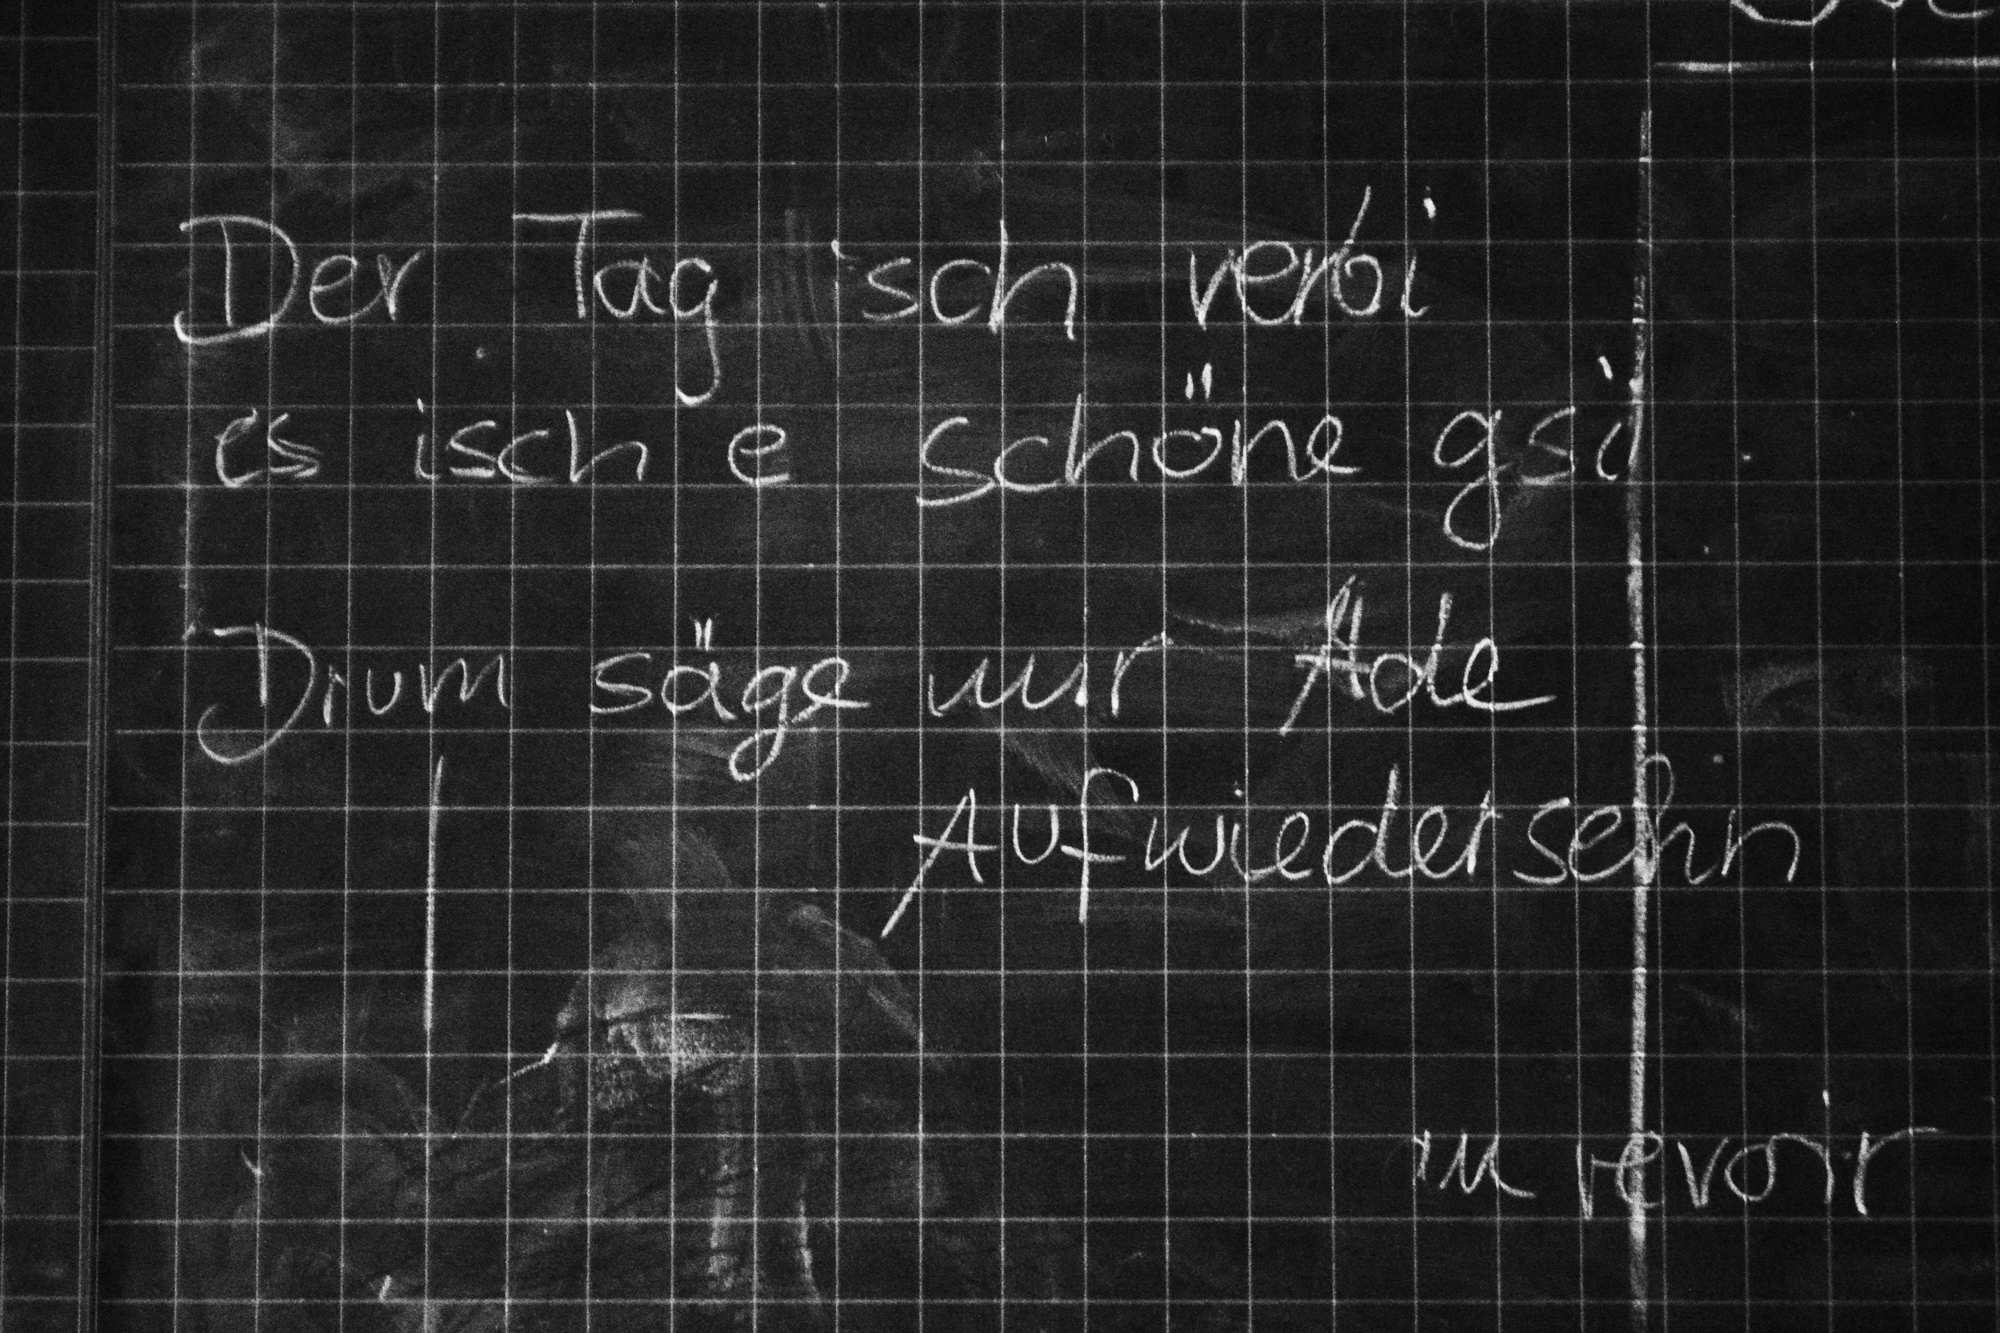 Der Tag 'sch verbi
es isch e schöne gsi
Drum säge mir Ade
Aufwiedersehn
revoir